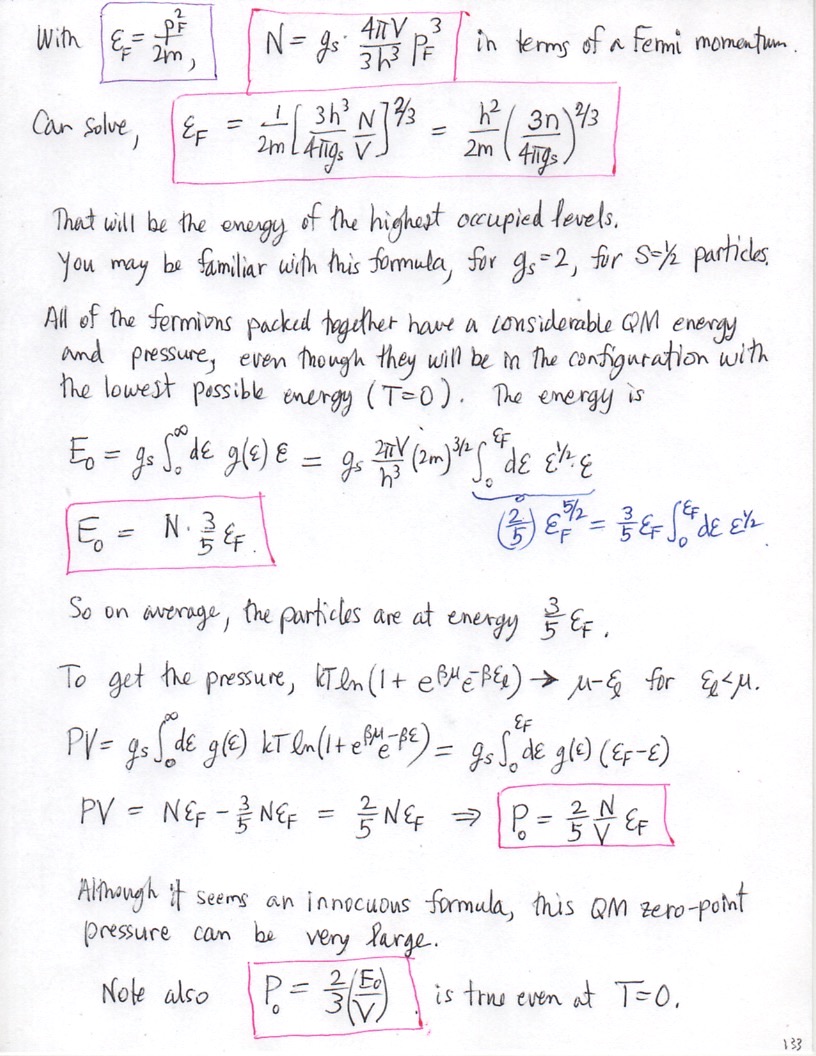 With ε_F = p_F²/2m, N = g_s · 4πV/3h³ p_F³ in terms of a Fermi momentum.
Can solve, ε_F = 1/2m [3h³/4πg_s N/V]^2/3 = h²/2m (3n/4πg_s)^2/3
That will be the energy of the highest occupied levels.
You may be familiar with this formula, for g_s=2, for S=½ particles.
All of the fermions packed together have a considerable QM energy
and pressure, even though they will be in the configuration with
the lowest possible energy (T=0). The energy is
E₀ = g_s ∫₀^∞ dε g(ε) ε = g_s 2πV/h³ (2m)^3/2 ∫₀^ε_F dε ε^½·ε
(2/5) ε_F^5/2 = 3/5 ε_F ∫₀^ε_F dε ε^½.
E₀ = N · 3/5 ε_F.
So on average, the particles are at energy 3/5 ε_F.
To get the pressure, kT ln(1 + e^βμ e^-βε_l) → μ-ε_l for ε_l<μ.
PV = g_s ∫₀^∞ dε g(ε) kT ln(1+e^βμ e^-βε) = g_s ∫₀^ε_F dε g(ε) (ε_F-ε)
PV = Nε_F - 3/5 Nε_F = 2/5 Nε_F ⇒ P₀ = 2/5 N/V ε_F
Although it seems an innocuous formula, this QM zero-point
pressure can be very large.
Note also P₀ = 2/3 (E₀/V). is true even at T=0.
133